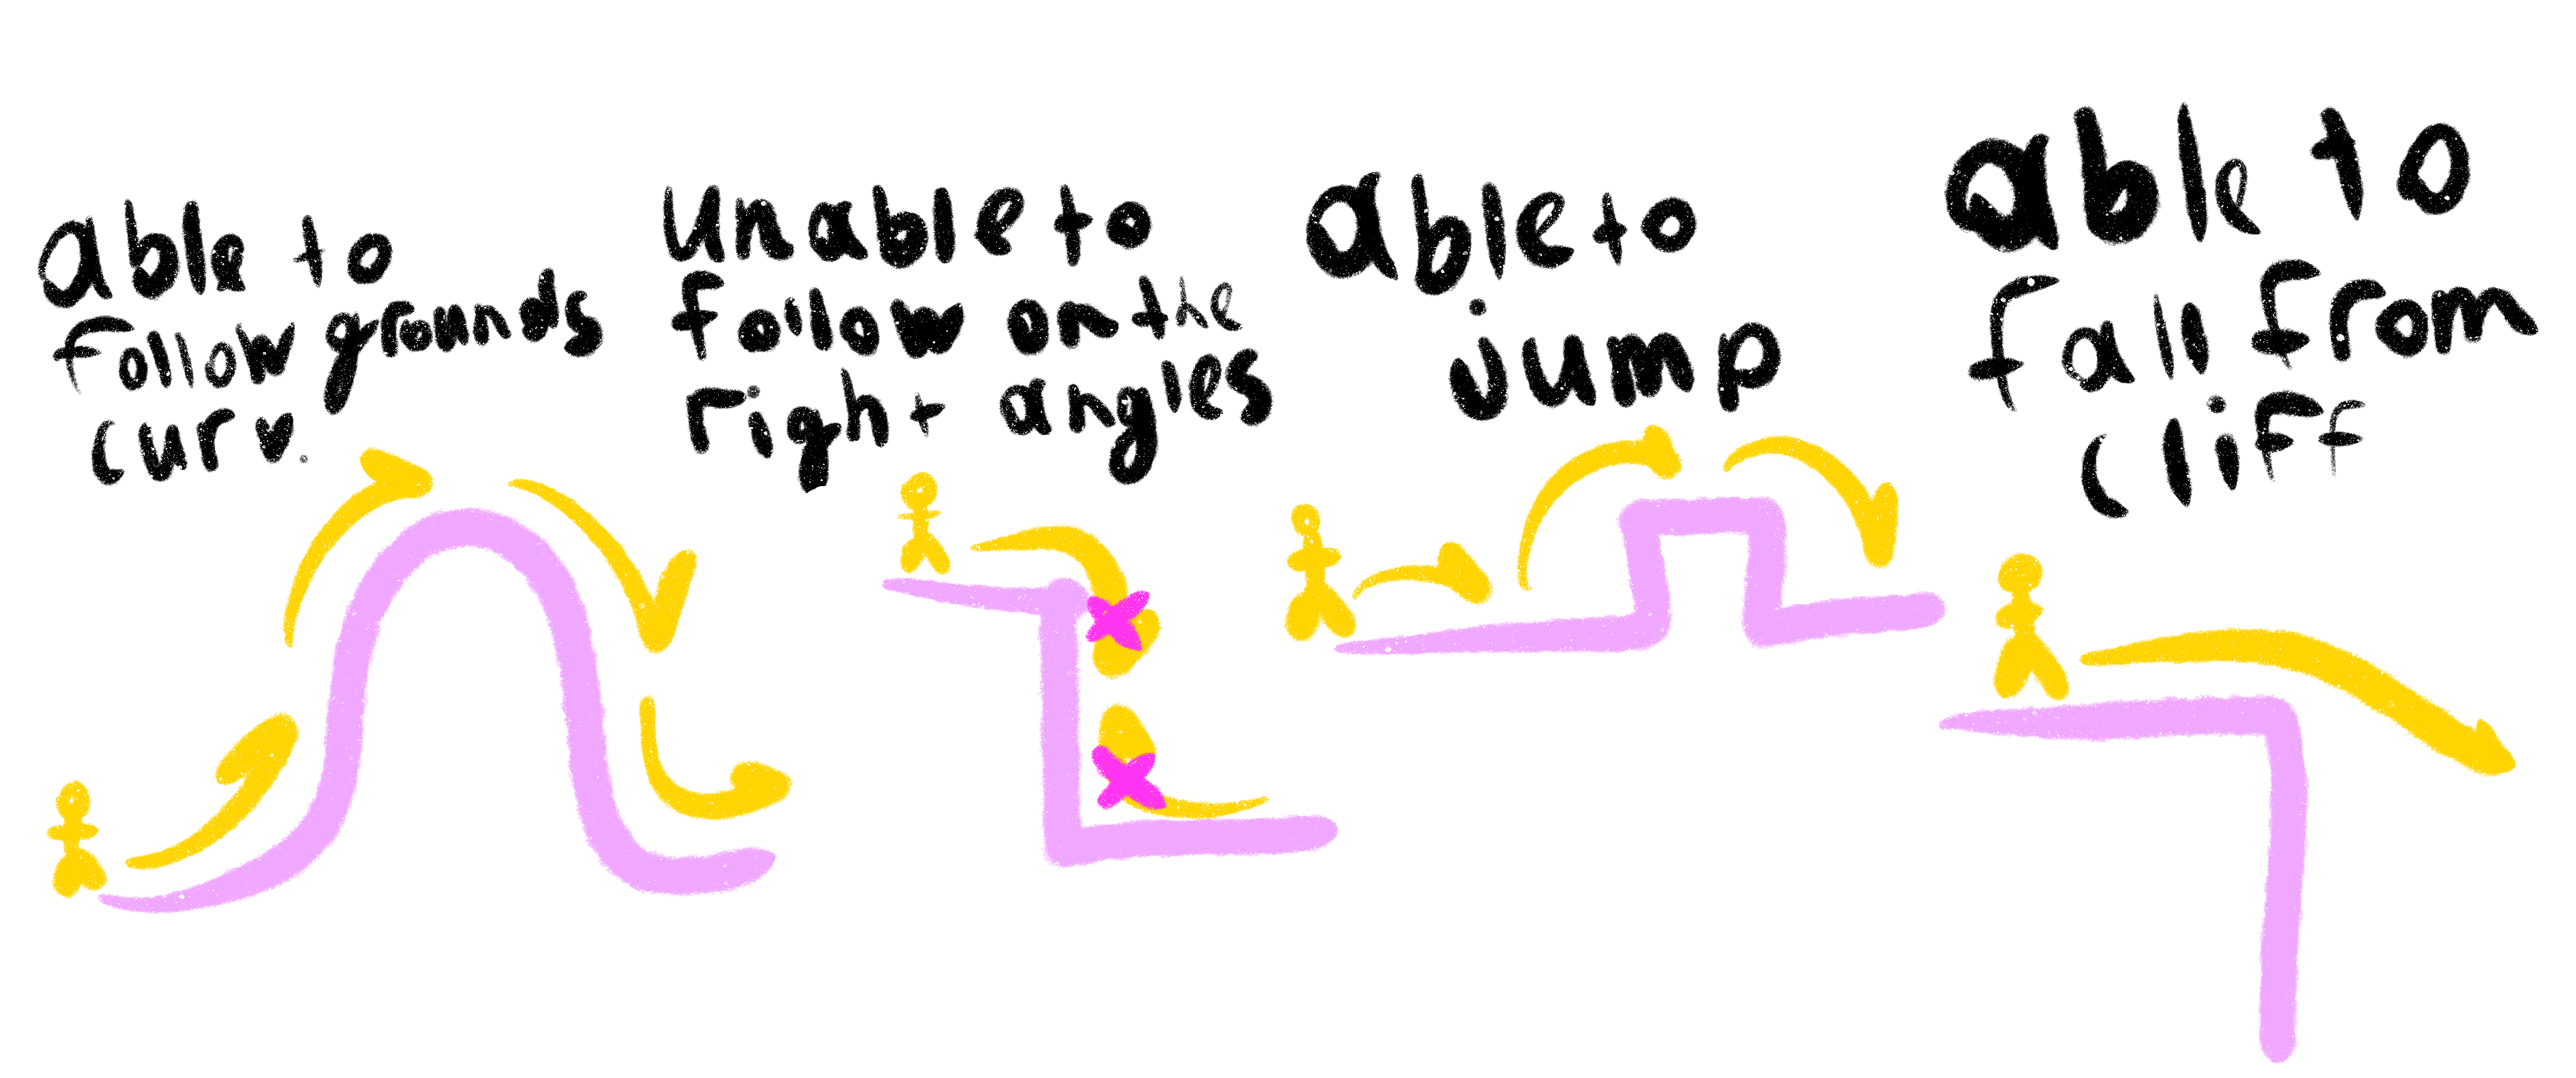 able to
follow grounds
curv.
unable to
follow on the
right angles
able to
jump
able to
fall from
cliff